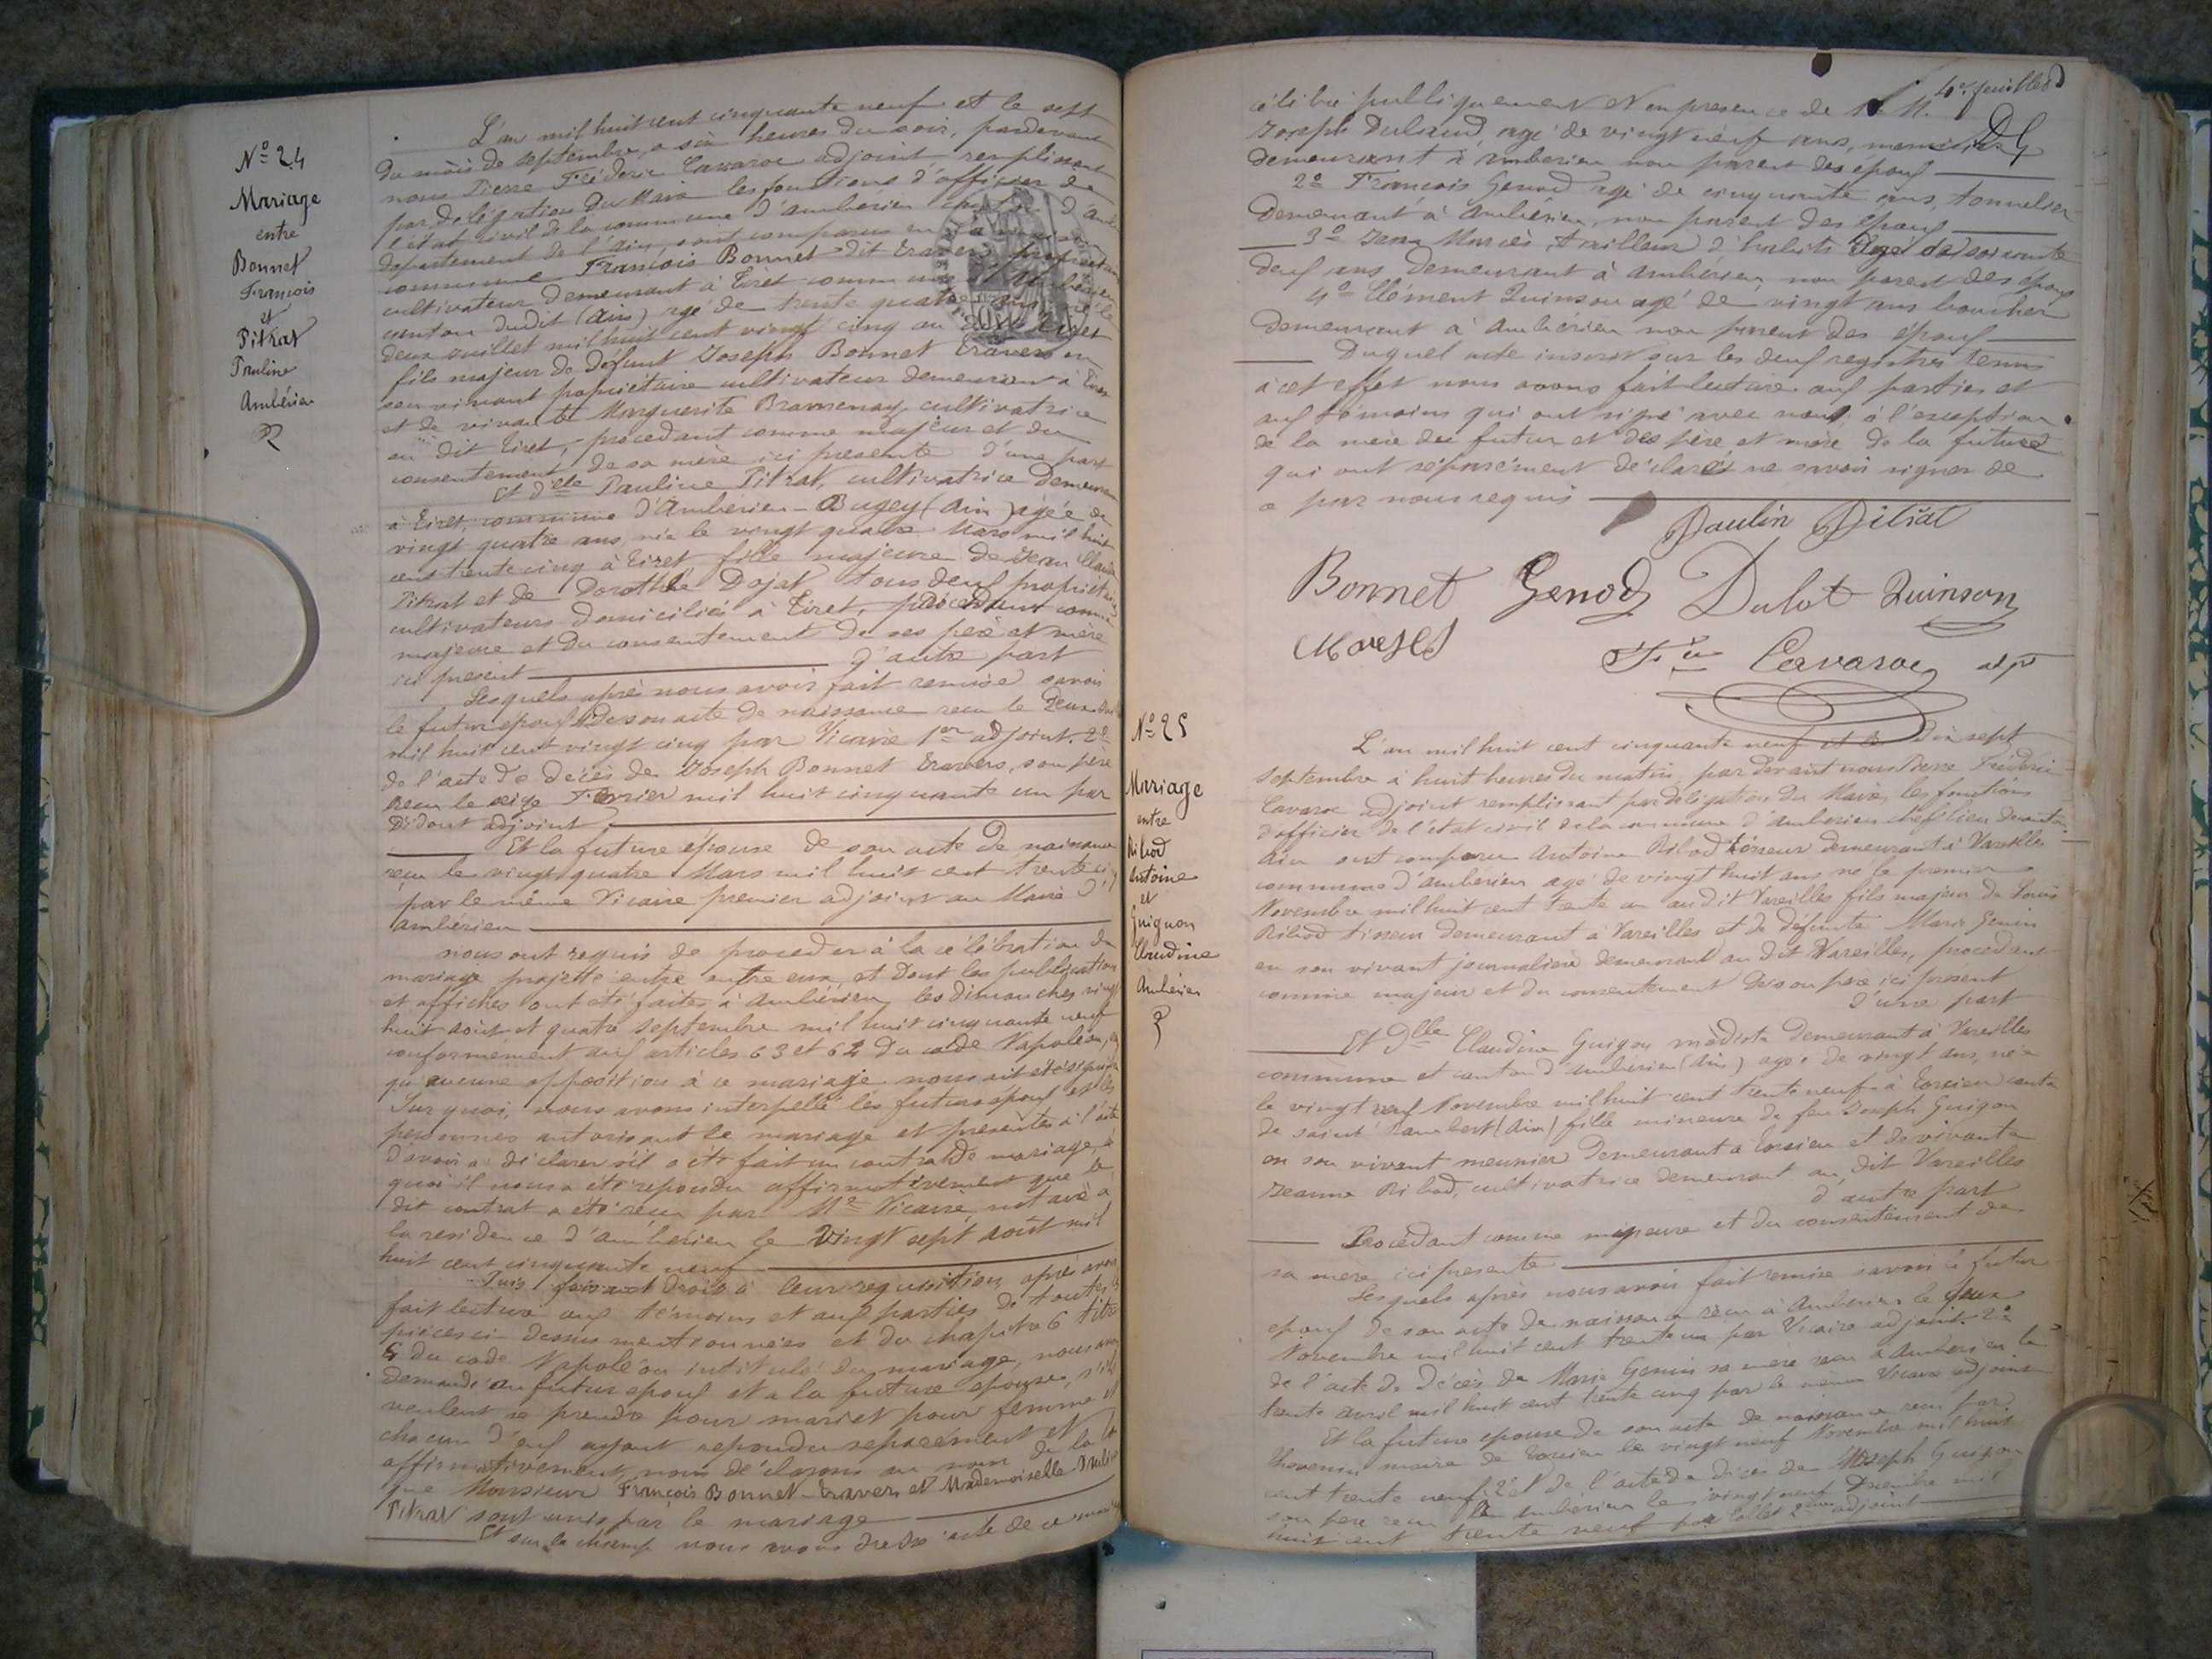 Nº 24
Mariage
entre
Bonnet
François
et
Pitrat
Pauline
Ambérieu
L'an mil huit cent cinquante neuf et le sept
du mois de septembre, a six heures du soir, pardevant
nous Pierre Fréderic Cavaroc adjoint remplissant
par délégation du Maire les fonctions d'officier de
l'état civil de la commune d'amberieu canton d'
département de l'ain, sont comparus en la maison
commune François Bonnet dit Travers propriétaire
cultivateur demeurant à Tiret commune d'Ambérieu
canton dudit (Ain) agé de trente quatre ans né le
deux juillet mil huit cent vingt cinq au dit Tiret
fils majeur de défunt Joseph Bonnet Travers en
son vivant propriétaire cultivateur demeurant à Tiret
et de vivante Marguerite Bravnenay, cultivatrice
au dit Tiret, procedant comme majeur et du
consentement de sa mère ici presente d'une part
Et dlle Pauline Pitrat, cultivatrice demeurant
à Tiret, commune d'Ambérieu-Bugey (Ain) agée de
vingt quatre ans, née le vingt quatre Mars mil huit
cent trente cinq à Tiret fille majeure de Jean Claude
Pitrat et de Dorothée Dojat tous deux propriétaires
cultivateurs domiciliés à Tiret, procedant comme
majeure et du consentement de ses père et mère
ici present d'autre part
Lesquels après nous avoir fait remise savoir
le futur epoux 1º de son acte de naissance recu le deux
mil huit cent vingt cinq par Vicaire 1er adjoint. 2º
de l'acte de décès de Joseph Bonnet Travers, son père
recu le seize Fevrier mil huit cinquante un par
Didout adjoint
Et la future épouse de son acte de naissance
reçu le vingt quatre Mars mil huit cent trente cinq
par le même Vicaire premier adjoint au Maire d'
Ambérieu
nous ont requis de proceder à la célébration du
mariage projetté entre entre eux, et dont les publications
et affiches ont été faites à Ambérieu les dimanches vingt
huit août et quatre septembre mil huit cinquante neuf
conformément aux articles 63 et 64 du code Napoléon,
qu'aucune opposition à ce mariage nous ait été signifiée
Sur quoi, nous avons interpellé les futurs epoux et les
personnes autorisant le mariage et presentes à l'acte
d'avoir a déclarer s'il a été fait un contrat de mariage, à
quoi il nous a été repondu affirmativement que le
dit contrat a été recu par Me Vicaire, notaire à
la residence d'ambérieu le vingt sept août mil
huit cent cinquante neuf
Puis faisant droit à leur requisition, apres avoir
fait lecture aux témoins et aux parties de toutes les
pièces ci-dessus mentionnées et du chapitre 6 titre
5 du code Napoléon intitulé du mariage, nous avons
demandé au futur epoux et a la future epouse, s'ils
veulent se prendre pour mari et pour femme et
chacun d'eux ayant repondu separément et
affirmativement, nous déclarons au nom de la loi
que Monsieur François Bonnet-Travers et Mademoiselle Pauline
Pitrat sont unis par le mariage
Et sur le champ nous avons dréssé acte de ce mariage
4e feuillet
célébré publiquement et en presence de M. M.
Joseph Dulaud, agé de vingt neuf ans, menuisier
demeurant à amberieu non parent des époux
2º François Genod agé de cinquante ans, tonnelier
demeurant à Ambérieu, non parent des époux
3º Jean Marcès, tailleur d'habits agé de soixante
deux ans demeurant à ambérieu, non parent des époux
4º Clément Quinson agé de vingt ans boucher
demeurant à Ambérieu non parent des époux
Duquel acte inscrit sur les deux registres tenus
à cet effet nous avons fait lecture aux parties et
aux témoins qui ont signé avec nous, à l'exception
de la mère du futur et des père et mère de la future
qui ont séparément déclaré ne savoir signer de
ce par nous requis
Paulin Pitrat
Bonnet Genod Dulot Quinson
Cavaroc adjt
Nº 25
Mariage
entre
Ribod
Antoine
et
Guignon
Claudine
Ambérieu
L'an mil huit cent cinquante neuf et le dix sept
Septembre à huit heures du matin, par devant nous Pierre Fréderic
Cavaroc adjoint remplissant par délégation du Maire les fonctions
d'officier de l'état civil de la commune d'amberieu chef lieu de canton
Ain ont comparu Antoine Ribod tisseur demeurant à Vareilles
commune d'ambérieu agé de vingt huit ans né le premier
Novembre mil huit cent trente un audit Vareilles fils majeur de Louis
Ribod tisseur demeurant à Vareilles et de défunte Marie Genin
en son vivant journaliere demeurant au dit Vareilles, procedant
comme majeur et du consentement de son père ici present
d'une part
Et Dlle Claudine Guigon modiste demeurant à Vareilles
commune et canton d'ambérieu (Ain) agée de vingt ans, née
le vingt neuf Novembre mil huit cent trente neuf à Torcieu canton
de saint Rambert (Ain) fille mineure de feu Joseph Guigon
en son vivant meunier demeurant à Torcieu et de vivante
Jeanne Ribod, cultivatrice demeurant au dit Vareilles
d'autre part
Procedant comme mineure et du consentement de
sa mère ici presente
Lesquels après nous avoir fait remise savoir le futur
epoux de son acte de naissance recu à Amberieu le deux
Novembre mil huit cent trente un par Vicaire adjoint. 2º
de l'acte de décès de Marie Genin sa mère recu à Amberieu le
trente avril mil huit cent trente cinq par le meme Vicaire adjoint
Et la future epouse de son acte de naissance recu par
Thevenin maire de Torcieu le vingt neuf Novembre mil huit
cent trente neuf, 2º et de l'acte de décès de Joseph Guigon
son père recu à amberieu le vingt neuf Decembre mil
huit cent trente neuf par Collet 2eme adjoint